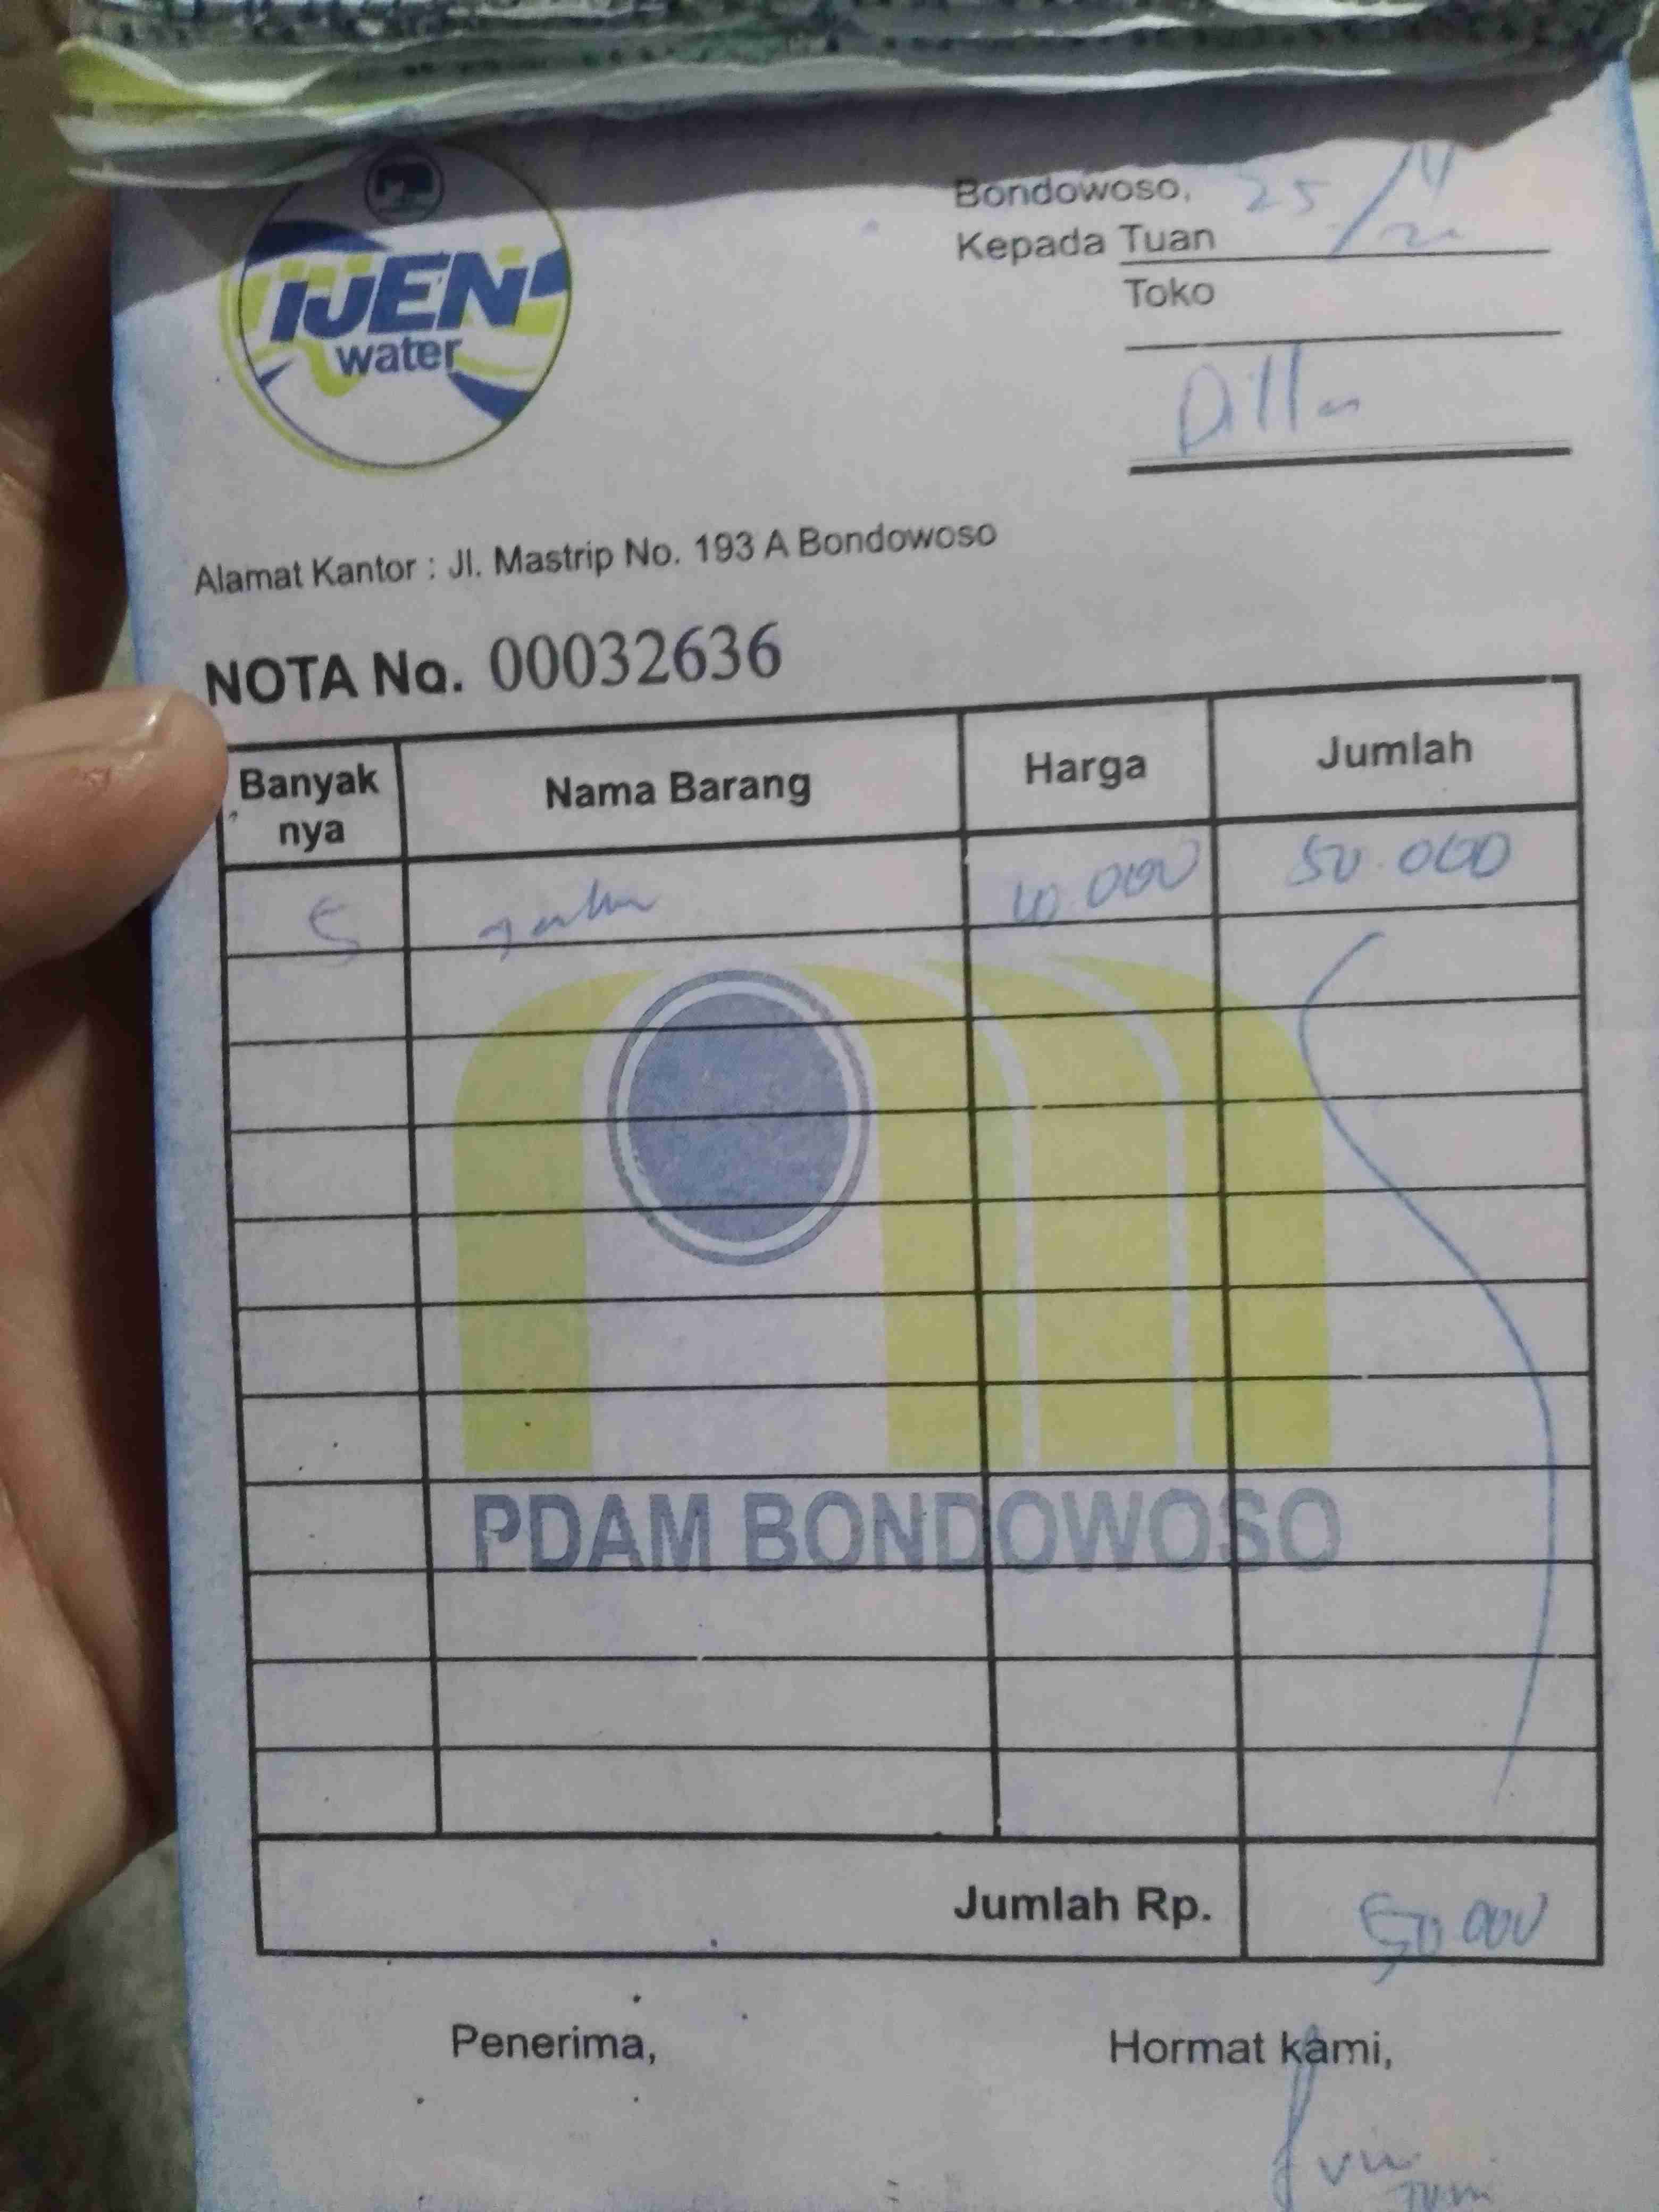 IJEN
water
Bondowoso, 25/11
Kepada Tuan
Toko
Dilla
Alamat Kantor : Jl. Mastrip No. 193 A Bondowoso
NOTA No. 00032636
Banyak nya Nama Barang Harga Jumlah
5 10.000 50.000
PDAM BONDOWOSO
Jumlah Rp. 50.000
Penerima, Hormat kami,